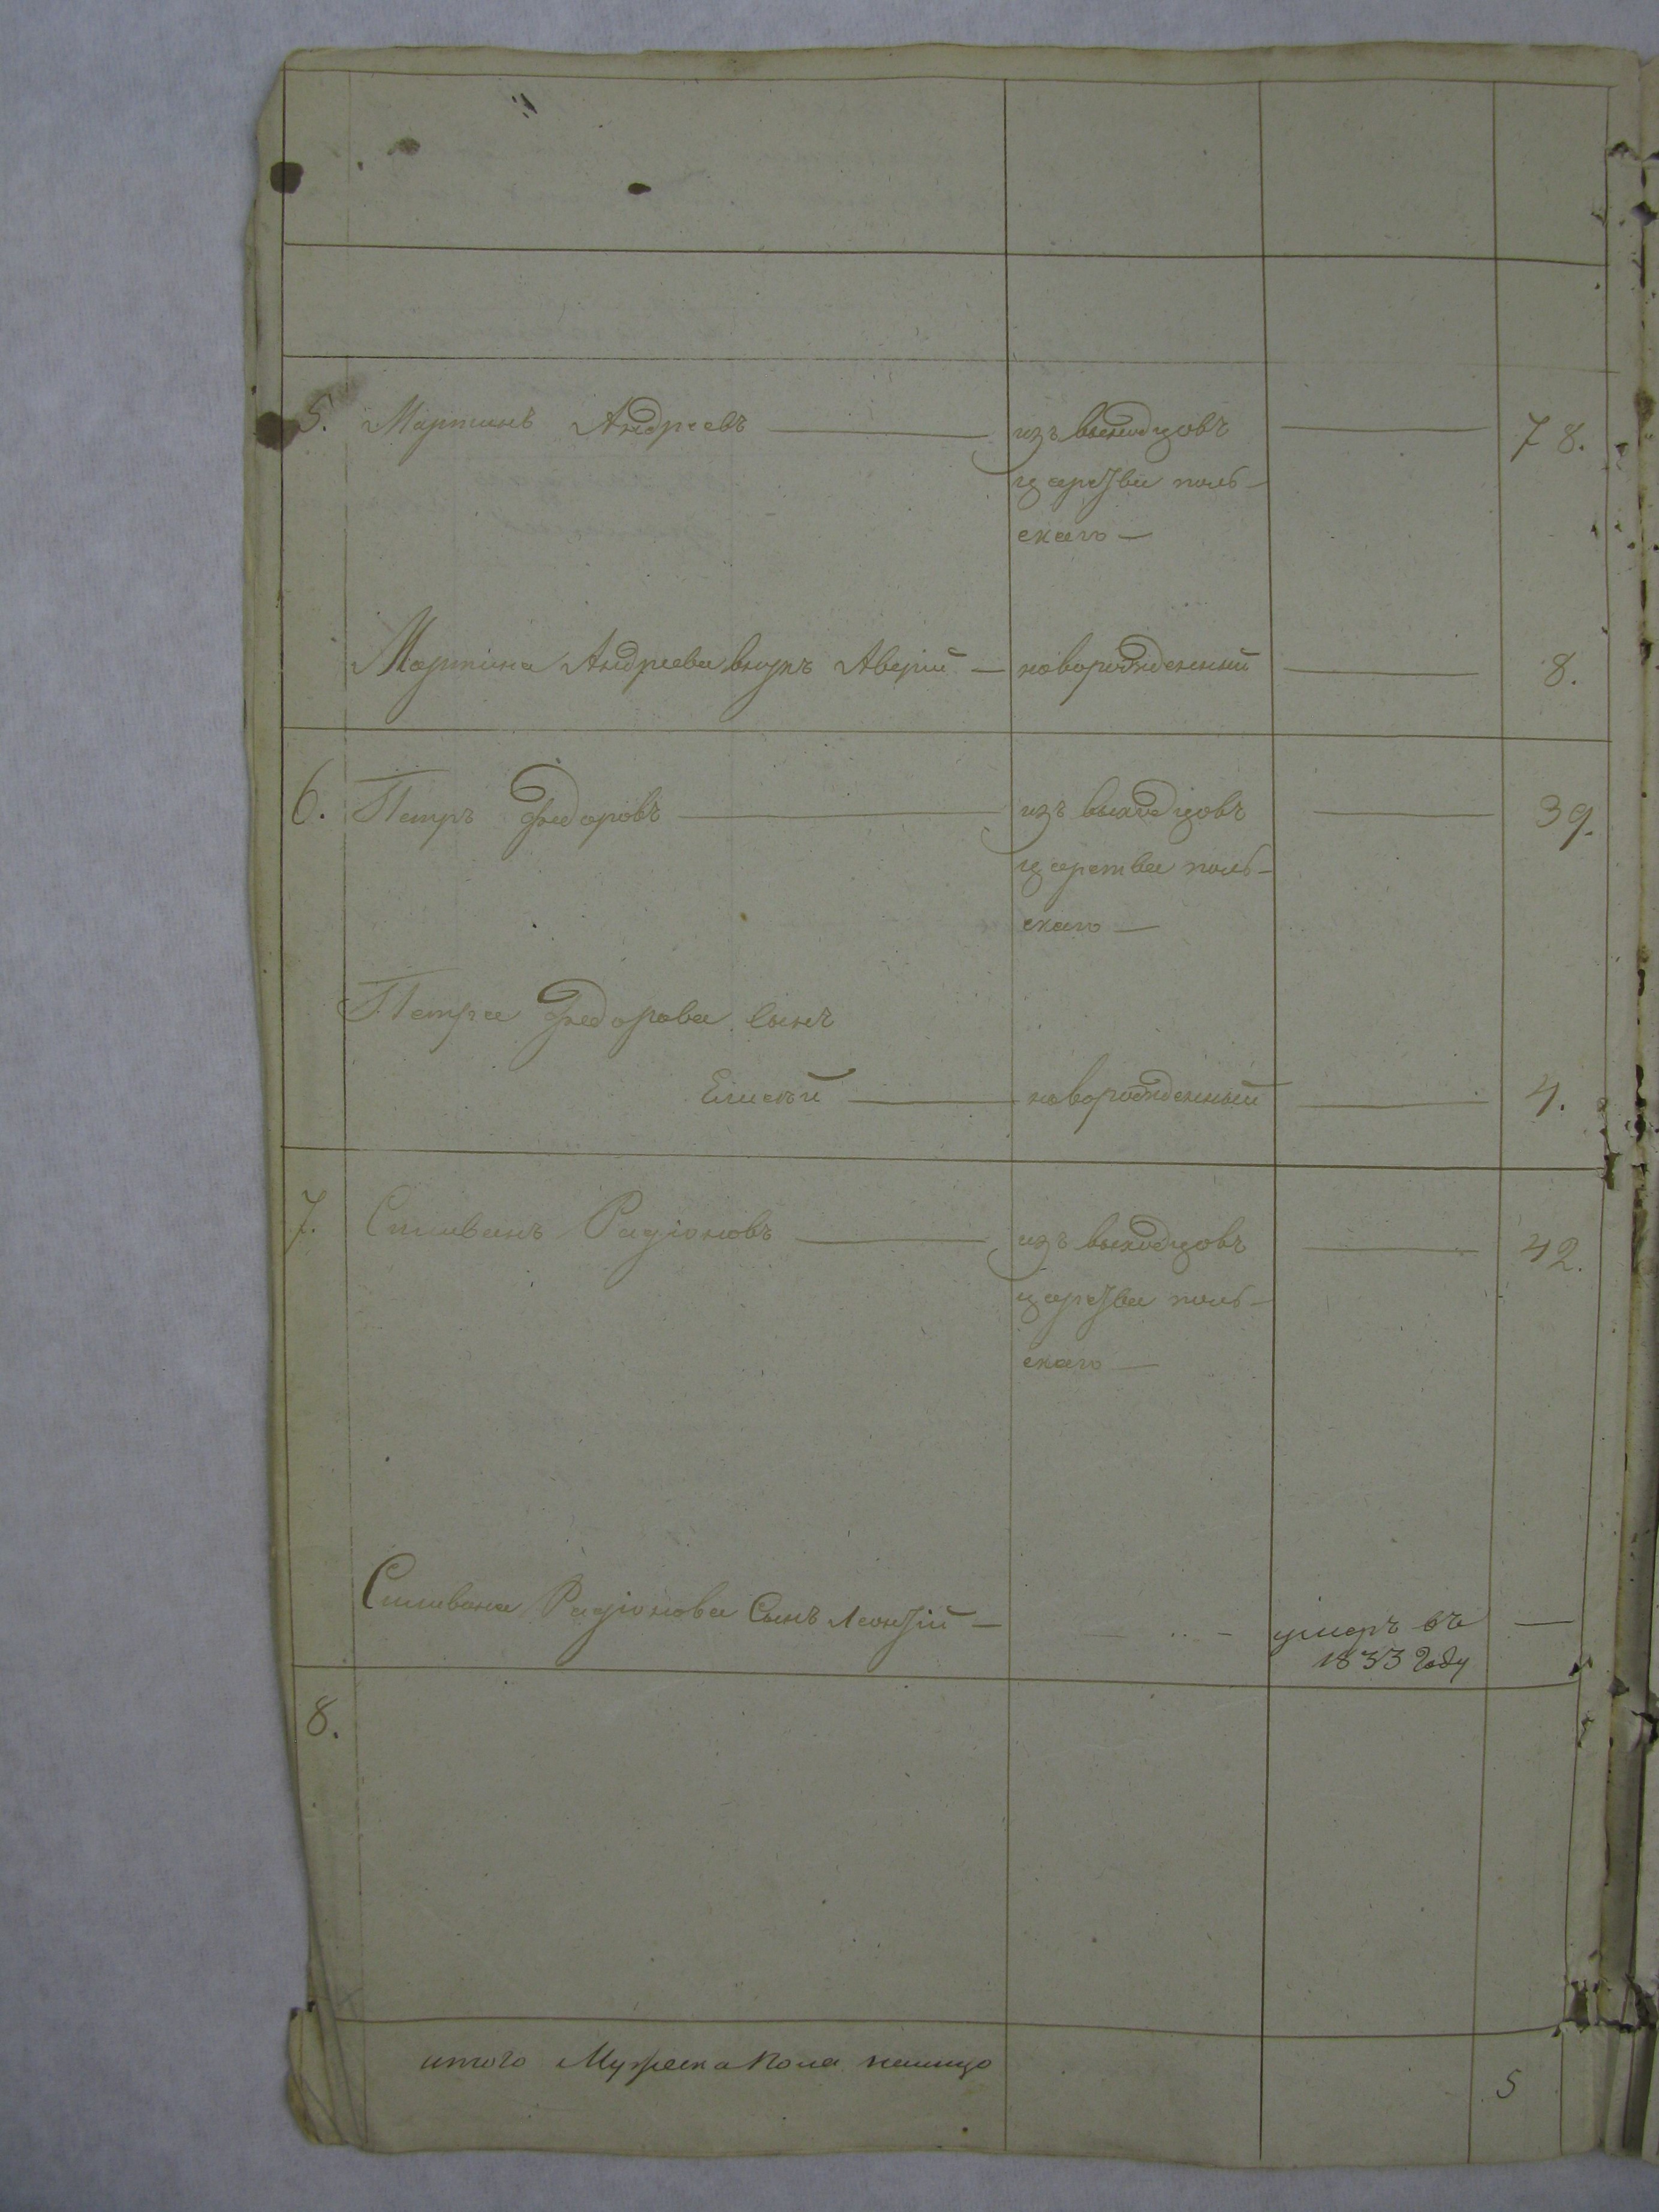 5. Мартинъ Андреевъ — изъ выходцовъ — 78.
царства поль-
скаго —
Мартина Андреева внукъ Аверій — новорожденный — 8.
6. Петръ Федоровъ — изъ выходцовъ — 39.
царства поль-
скаго —
Петра Федорова сынъ
Елисей — новорожденный — 4.
7. Силиванъ Радіоновъ — изъ выходцовъ — 42.
царства поль-
скаго —
Силивана Радіонова Сынъ Леонтій — умеръ въ —
1833 году
8.
итого Мужеска Пола налицо 5